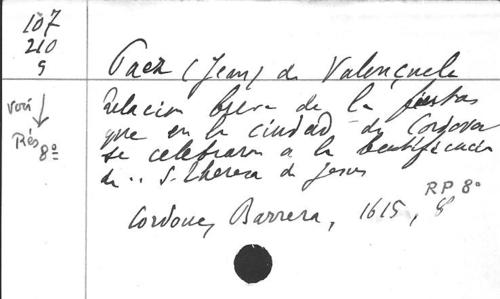 107
210
9
voir
Rés
8º
Paez (Jean) de Valençuela
Relacion breve de la fiestas
que en la ciudad de Cordova
se celebraron a la beatificada
de .. S. Theresa de Jesus
Cordoue, Barrera, 1615, 8º
RP 8º